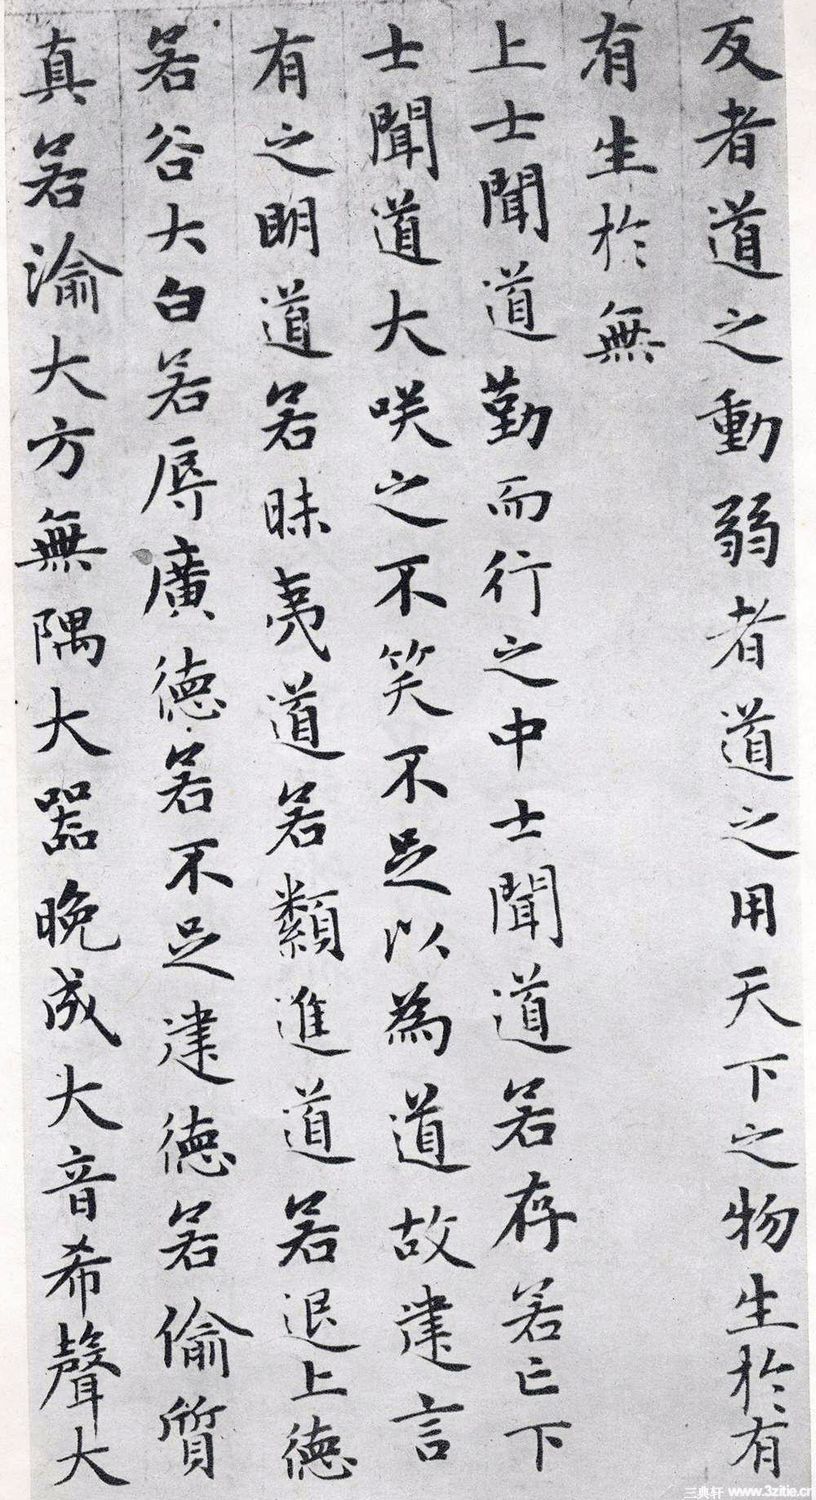 反者道之動弱者道之用天下之物生於有
有生於無
上士聞道勤而行之中士聞道若存若亡下
士聞道大咲之不笑不足以為道故建言
有之明道若昧夷道若類進道若退上德
若谷大白若辱廣德若不足建德若偷質
真若渝大方無隅大器晚成大音希聲大
三典轩 www.3zitie.cn